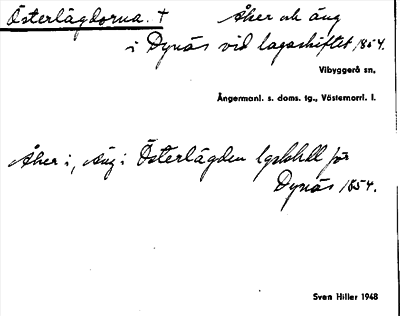 Österlägdorna. † Åker och äng
i Dynäs vid lagaskiftet 1854.
Vibyggerå sn.
Ångermanl. s. doms. tg., Västernorrl. l.
Åker i, äng i Österlägden lgskhdl för
Dynäs 1854.
Sven Hiller 1948